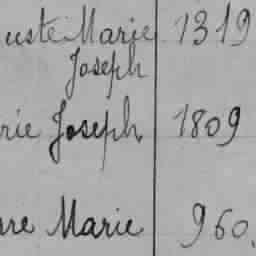 uste Marie 1319
Joseph
rie Joseph 1809
rre Marie 960.